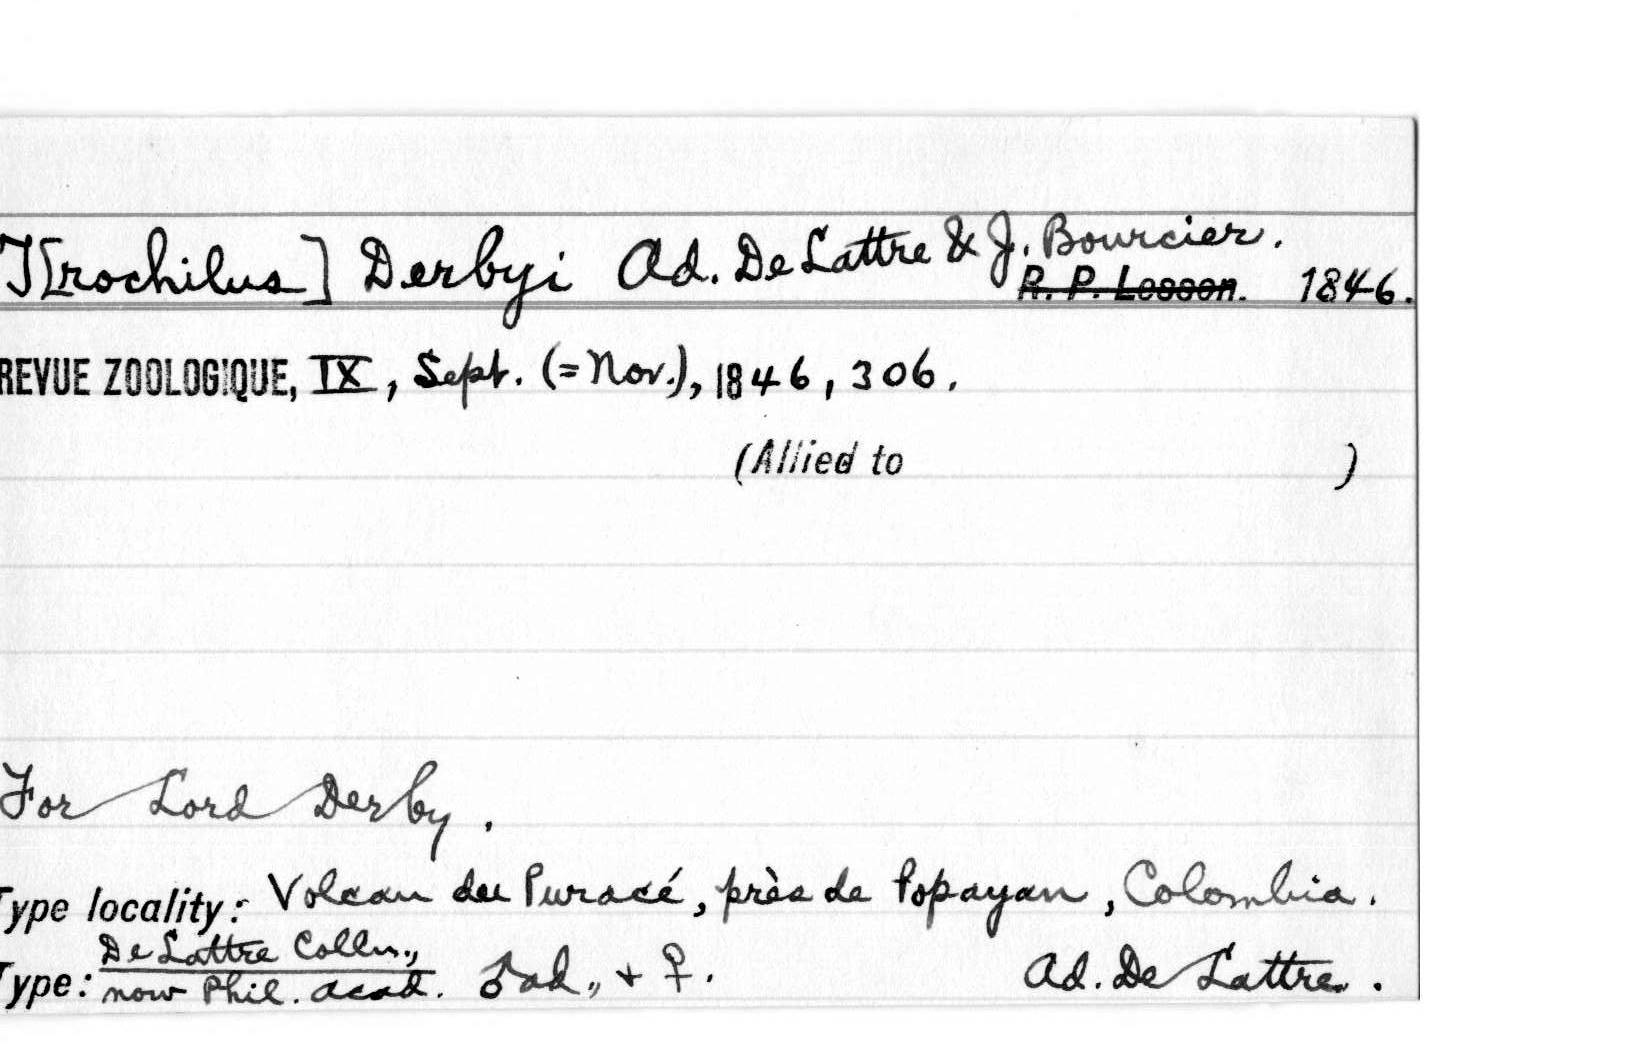 T[rochilus] Derbyi Ad. De Lattre & J. Bourcier.
R. P. Lesson. 1846.
REVUE ZOOLOGIQUE, IX, Sept. (=Nov.), 1846, 306.
(Allied to )
For Lord Derby.
Type locality: Volcan du Puracé, près de Popayan, Colombia.
De Lattre Colln.,
Type: now Phil. Acad. ♂ ad., + ♀. Ad. De Lattre.